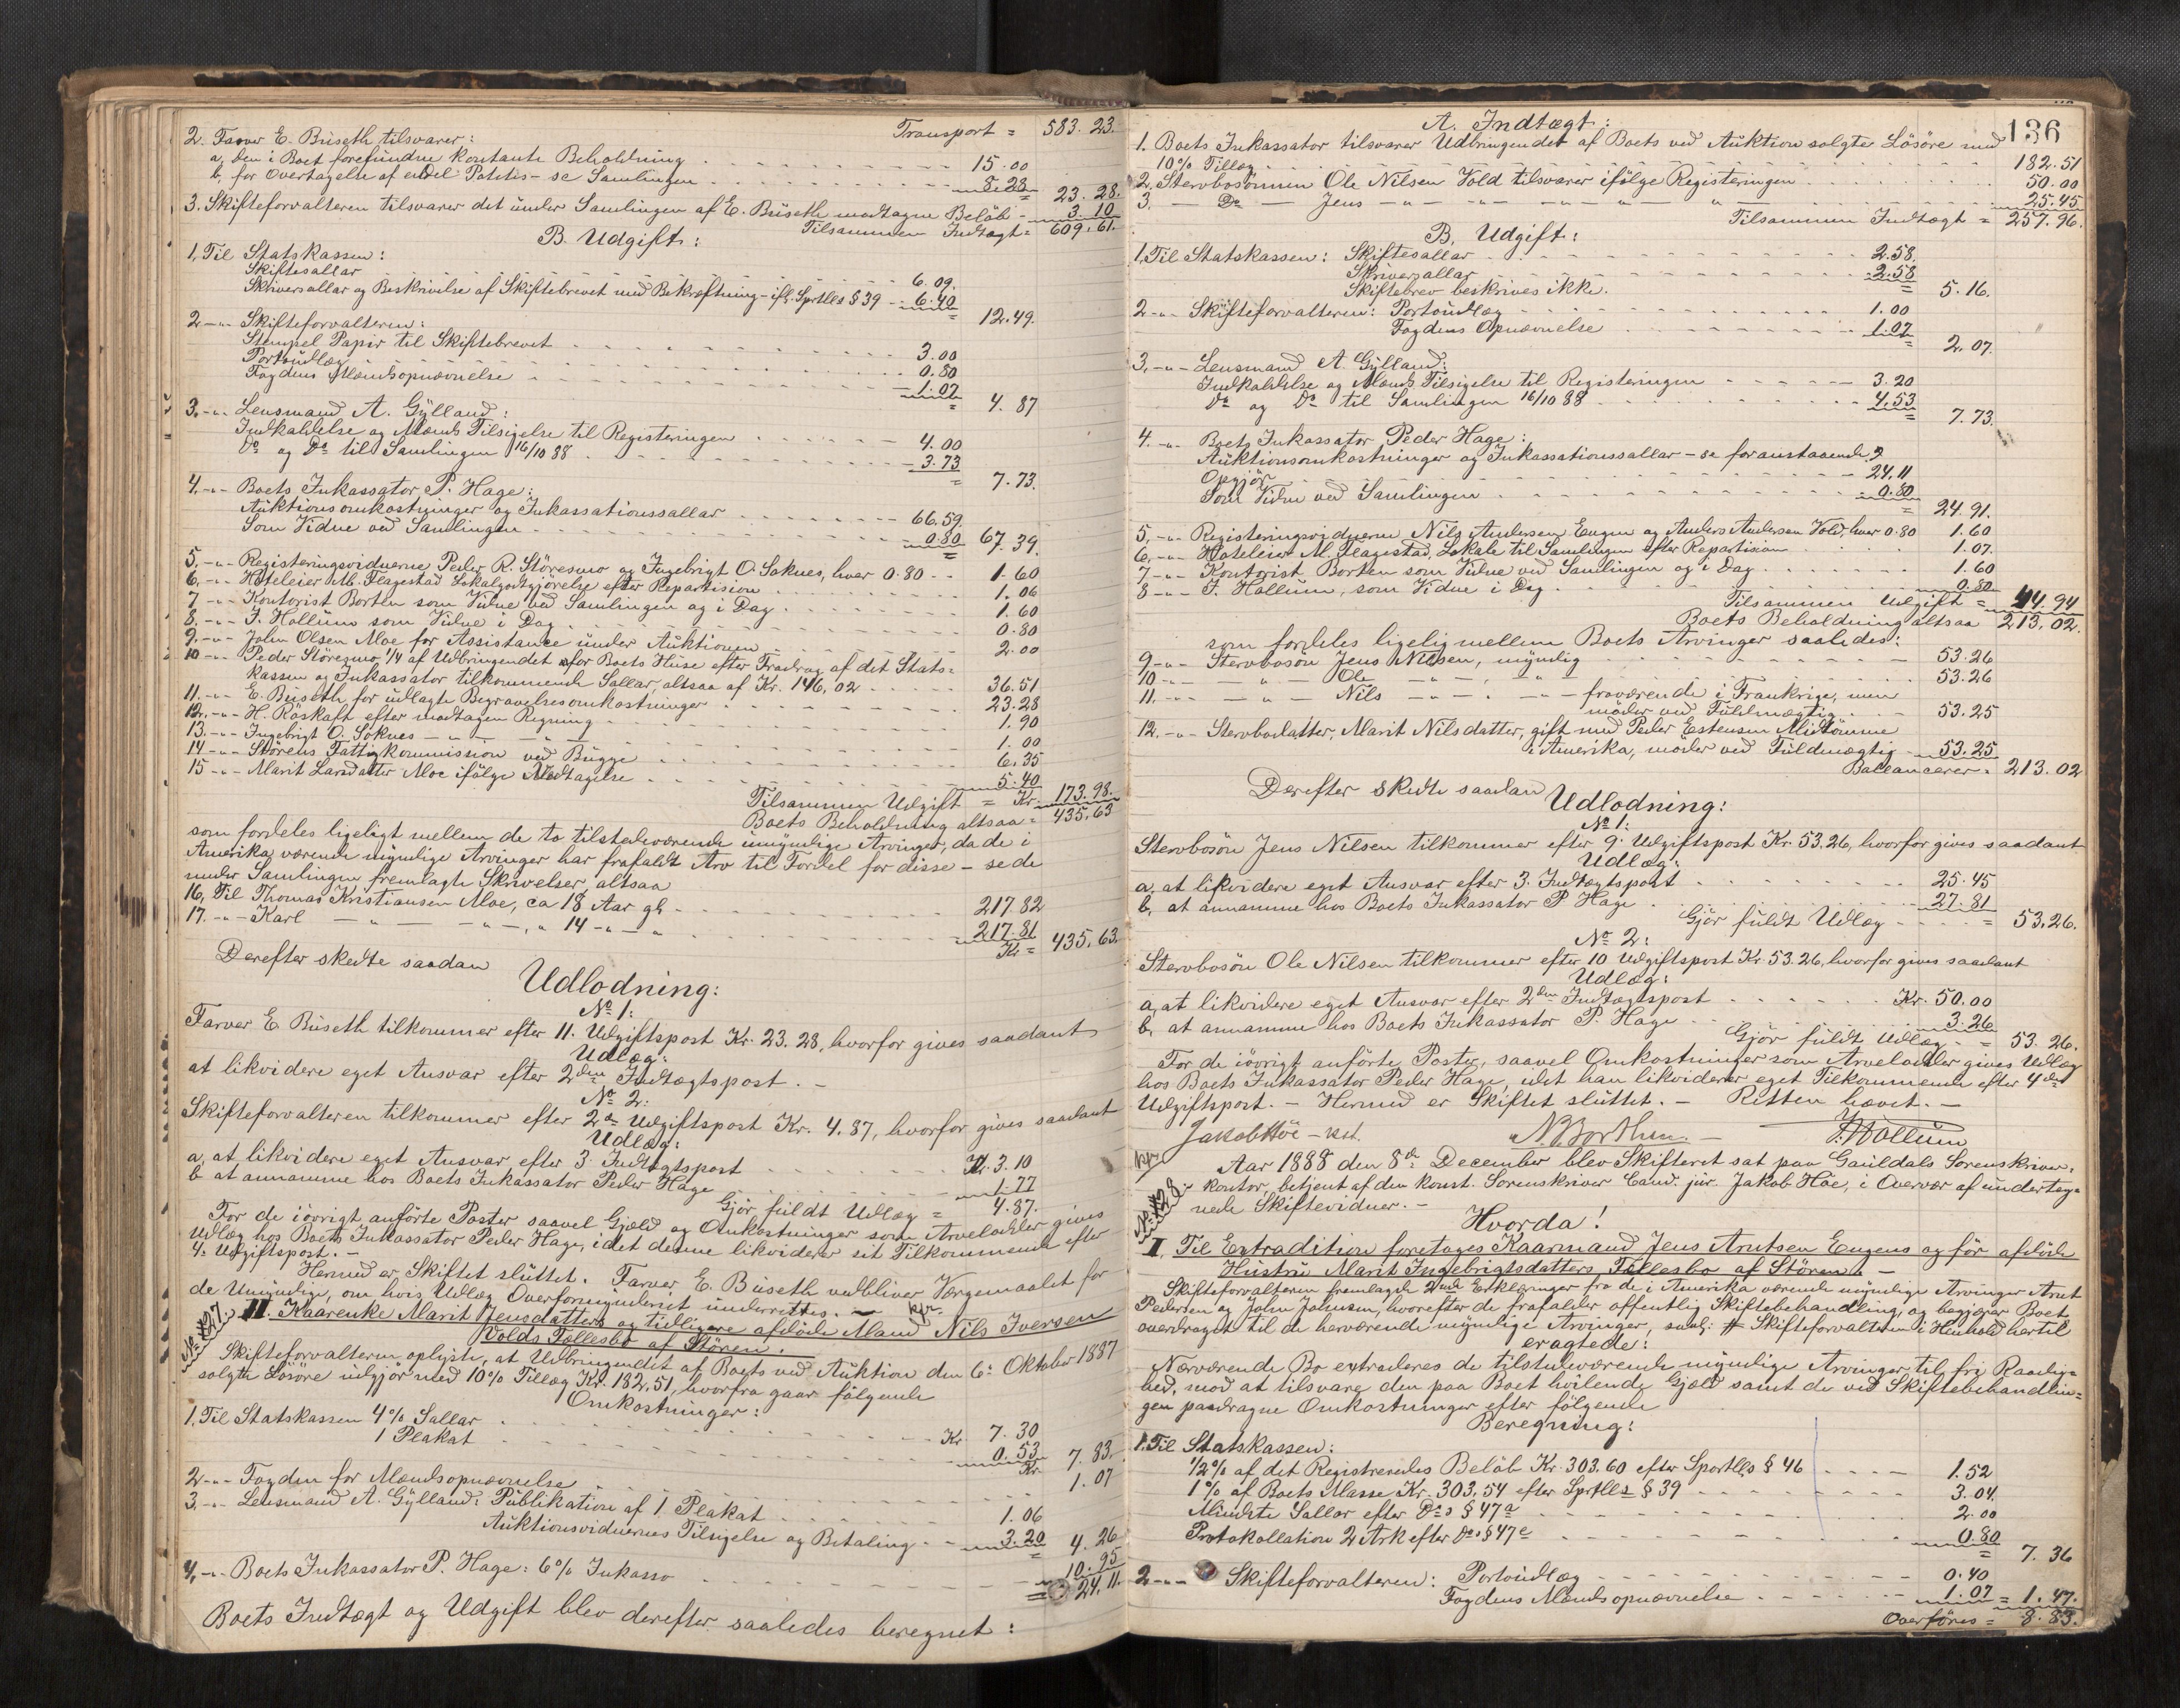 Transport = 583.23.
2. Farver E. Buseth tilsvarer:
a, den i Boet forefundne kontante Beholdning 15.00
b, for Overtagelse af endel Potetes - se Samlingen 8.28 = 23.28.
3. Skifteforvalteren tilsvarer det under Samlingen af E. Buseth modtagne Beløb - 3.10
Tilsammen Indtægt = 609.61.
B. Udgift:
1, Til Statskassen:
Skiftesallar 6.09.
Skriversallar og Beskrivelse af Skiftebrevet med Bekræftning - ifl. Sprtlls § 39 - 6.40 = 12.49.
2 -"- Skifteforvalteren:
Stempel Papir til Skiftebrevet 3.00
Portoudlæg 0.80
Fogdens Mændsopnævnelse 1.07 = 4.87
3, -"- Lensmand A. Gylland:
Indkaldelse og Mænds Tilsigelse til Registeringen 4.00
Do og Do til Samlingen 16/10 88 3.73 = 7.73.
4, -"- Boets Inkassator P. Hage:
Auktionsomkostninger og Inkassationssallar 66.59
Som Vidne ved Samlingen 0.80 = 67.39.
5, -"- Registeringsvidnerne Peder R. Støresmo og Ingebrigt O. Soknes, hver 0.80 - - 1.60
6, -"- Hoteleier M. Flagestad Lokalgodtgjørelse efter Repartision 1.06
7 -"- Kontorist Borten som Vidne ved Samlingen og i Dag 1.60
8, -"- F. Hollum som Vidne i Dag 0.80
9, -"- John Olsen Moe for Assistance under Auktionen 2.00
10 -"- Peder Støresmo 1/4 af Udbringendet for Boets Huse efter Fradrag af det Stats=
kassen og Inkassator tilkommende Sallar, altsaa af Kr. 146,02 36.51
11. -"- E. Buseth for udlagte Begravelsesomkostninger 23.28
12. -"- H. Røskaft efter modtagen Regning 1.90
13. -"- Ingebrigt O. Soknes - " - " - 1.00
14 -"- Størens Fattigkommission ved Bugge 6.35
15 -"- Marit Larsdatter Moe ifølge Vedtagelse 5.40
Tilsammen Udgift = Kr. 173.98.
Boets Beholdning altsaa = 435.63
som fordeles ligeligt mellem de to tilstedeværende umyndige Arvinger, da de i
Amerika værende myndige Arvinger har frafaldt Arv til Fordel for disse - se de
under Samlingen fremlagte Skrivelser, altsaa
16, Til Thomas Kristiansen Moe, ca 18 Aar gl. 217.82
17. -"- Karl - " - " -, " 14 - " - " 217.81
Kr = 435.63.
Derefter skedte saadan
Udlodning:
No 1:
Farver E. Buseth tilkommer efter 11. Udgiftspost Kr. 23.28, hvorfor gives saadant
Udlæg:
at likvidere eget Ansvar efter 2den Indtægtspost. -
No 2:
Skifteforvalteren tilkommer efter 2den Udgiftspost Kr. 4.87, hvorfor gives saadant
Udlæg:
a, at likvidere eget Ansvar efter 3. Indtægtspost Kr. 3.10
b at annamme hos Boets Inkassator Peder Hage 1.77
Gjør fuldt Udlæg = 4.87.
For de iøvrigt anførte Poster saavel Gjæld og Omkostninger som Arvelodder gives
Udlæg hos Boets Inkassator Peder Hage, idet denne likviderer sit Tilkommende efter
4. Udgiftspost. -
Hermed er Skiftet sluttet. Farver E. Buseth vedbliver Værgemaalet for
de Umyndige, om hvis Udlæg Overformynderiet underrettes. -
No 127.
II. Kaarenke Marit Jensdatters og tidligere afdøde Mand Nils Iversen
Volds Fællesbo af Støren.
Skifteforvalteren oplyste, at Udbringendet af Boets ved Auktion den 6: Oktober 1887
solgte Løsøre udgjør med 10% Tillæg Kr. 182,51, hvorfra gaar følgende
Omkostninger:
1, Til Statskassen 4% Sallar Kr. 7.30
1 Plakat 0.53 7.83.
2 -"- Fogden for Mændsopnævnelse Kr. 1.07
3, -"- Lensmand A. Gylland: Publikation af 1 Plakat 1.06
Auktionsvidnernes Tilsigelse og Betaling - - 3.20 4.26
4, -"- Boets Inkassator P. Hage: 6% Inkasso 10.95
= 24.11.
Boets Indtægt og Udgift blev derefter saaledes beregnet:
136
A. Indtægt:
1. Boets Inkassator tilsvarer Udbringendet af Boets ved Auktion solgte Løsøre med
10% Tillæg 182.51
2, Stervbosønnen Ole Nilsen Vold tilsvarer ifølge Registeringen 50.00
3. - Do - Jens - " - - " - - " - " 25.45
Tilsammen Indtægt = 257.96.
B. Udgift:
1, Til Statskassen: Skiftesallar 2.58.
Skriversallar 2.58
Skiftebrev beskrives ikke. = 5.16.
2 -"- Skifteforvalteren: Portoudlæg 1.00
Fogdens Opnævnelse 1.07 = 2.07.
3, -"- Lensmand A. Gylland:
Indkaldelse og Mænds Tilsigelse til Registeringen 3.20
Do og Do til Samlingen 16/10 88 4.53 = 7.73.
4. -"- Boets Inkassator Peder Hage:
Auktionsomkostninger og Inkassationssallar - se foranstaaende
Opgjør 24.11
Som Vidne ved Samlingen 0.80 = 24.91.
5, -"- Registeringsvidnerne Nils Andersen Engen og Anders Andersen Vold, hver 0.80 1.60
6, -"- Hoteleier M. Flagestad, Lokale til Samlingen efter Repartision 1.07.
7 -"- Kontorist Borten som Vidne ved Samlingen og i Dag 1.60
8 -"- F. Hollum, som Vidne i Dag 0.80
Tilsammen Udgift = 44.94
Boets Beholdning altsaa 213,02.
som fordeles ligelig mellem Boets Arvinger saaledes:
9 -"- Stervbosøn Jens Nilsen, myndig 53.26
10 -"- - " - Ole - " - , " 53.26
11, -"- - " - Nils - " - . - " - fraværende i Frankrige, men
møder ved Fuldmægtig 53.25
12. -"- Stervbodatter, Marit Nilsdatter, gift med Peder Estensen Midtømme
i Amerika, møder ved Fuldmægtig 53.25
Ballancerer = 213.02
Derefter skedte saadan
Udlodning:
No 1:
Stervbosøn Jens Nilsen tilkommer efter 9. Udgiftspost Kr. 53.26, hvorfor gives saadant
Udlæg:
a, at likvidere eget Ansvar efter 3. Indtægtspost 25.45
b, at annamme hos Boets Inkassator P Hage 27.81
Gjør fuldt Udlæg = 53.26.
No 2:
Stervbosøn Ole Nilsen tilkommer efter 10 Udgiftspost Kr. 53.26, hvorfor gives saadant
Udlæg:
a, at likvidere eget Ansvar efter 2den Indtægtspost Kr. 50.00
b, at annamme hos Boets Inkassator P. Hage 3.26
Gjør fuldt Udlæg - = 53.26.
For de iøvrigt anførte Poster, saavel Omkostninger som Arvelodder gives Udlæg
hos Boets Inkassator Peder Hage, idet han likviderer eget Tilkommende efter 4de
Udgiftspost. - Hermed er Skiftet sluttet. - Retten hævet. -
Jakob Høe - kst. N. Borthen. - F. Hollum
Aar 1888 den 8de December blev Skifteret sat paa Gauldals Sorenskriver-
kontor, betjent af den konst. Sorenskriver Cand. jur. Jakob Høe, i Overvær af underteg=
nede Skiftevidner. -
Hvorda!
No 128.
I. Til Extradition foretoges Kaarmand Jens Arntsen Engens og før afdøde
Hustru Marit Ingebrigtsdatters Fællesbo af Støren. -
Skifteforvalteren fremlagde 2nde Erklæringer fra de i Amerika værende myndige Arvinger Arnt
Pedersen og John Johnsen, hvorefter de frafalder offentlig Skiftebehandling, og begjærer Boet
overdraget til de herværende myndige Arvinger, Skifteforvalteren i Henhold hertil
eragtede:
Nærværende Bo extraderes de tilstedeværende myndige Arvinger til fri Raadig=
hed, mod at tilsvare den paa Boet hvilende Gjæld samt de ved Skiftebehandlin=
gen paadragne Omkostninger efter følgende
Beregning:
1. Til Statskassen:
1/2% af det Registreredes Beløb Kr. 303.60 efter Sportlls § 46 1.52
1% af Boets Masse Kr. 303.54 efter Sprtlls § 39 3.04.
Mindste Sallar efter Dos § 47a 2.00
Protokollation 2 Ark efter Dos § 47e 0.80 = 7.36
2 -"- Skifteforvalteren: Portoudlæg 0.40
Fogdens Mændsopnævnelse 1.07 = 1.47.
Overføres = 8.83.